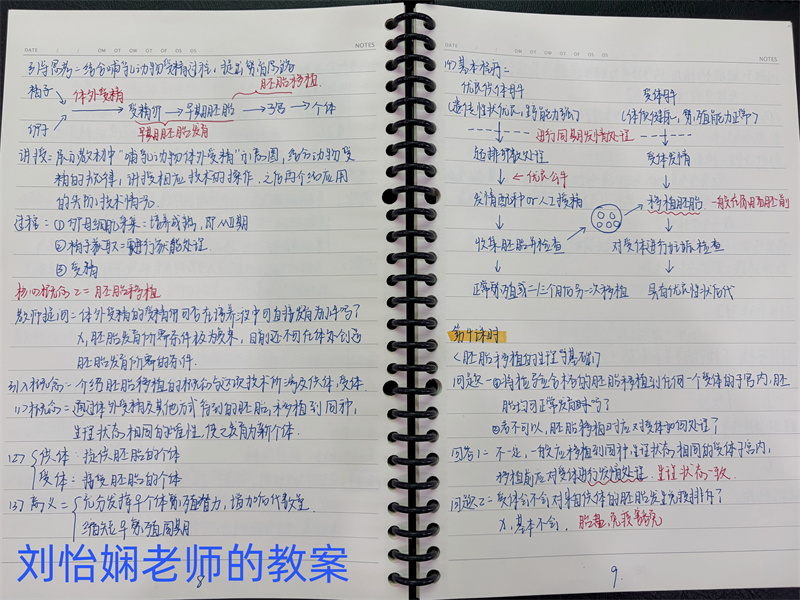 DATE
NOTES
引导思考=结合哺乳动物受精过程,提出繁育思路
胚胎移植
精子
体外受精
受精卵→早期胚胎→子宫→个体
卵子
早期胚胎发育
讲授=展示教材中"哺乳动物体外受精"示意图,结合动物受
精的规律,讲授相应技术的操作
过程=①卵母细胞采集=培养成熟,即MⅡ期
②精子获取=要进行获能处理
③受精
核心概念2=胚胎移植
教师提问=体外受精的受精卵可否在培养液中可直接发育为个体吗?
X,胚胎发育所需条件极为复杂,目前还不可在体外创造
胚胎发育所需的条件.
引入概念=介绍胚胎移植的概念与这项技术所涉及供体,受体
(1)概念=通过体外受精及其他方式得到的胚胎,移植到同种,
生理状态相同的雌性,使之发育为新个体.
(2)供体:提供胚胎的个体
受体:接受胚胎的个体
(3)意义=充分发挥早个体繁殖潜力,增加后代数量
缩短早繁殖周期
刘怡娴老师的教案
8
DATE
NOTES
(4)基本程序=
优良供体母牛 受体母牛
(遗传性状优良,生产能力强) (体质健康,繁殖能力正常)
进行同期发情处理
超排卵数处理 受体发情
←优良公牛
发情配种or人工授精 移植胚胎 一般在原肠胚前
收集胚胎并检查 对受体进行妊娠检查
正常繁殖或二/三个月后另一次移植 具有优良性状后代
第4课时
<胚胎移植的生理学基础>
问题一=①将检验合格的胚胎移植到任何一个受体的子宫内,胚
胎均可正常发育吗?
②若不可以,胚胎移植时应对受体如何处理?
回答1=不一定,一般应移植到同种,生理状态相同的受体子宫内,
移植前应对受体进行发情处理,生理状态一致.
问题2=受体会不会对来自供体的胚胎发生免疫排斥?
X.基本不会.
9.